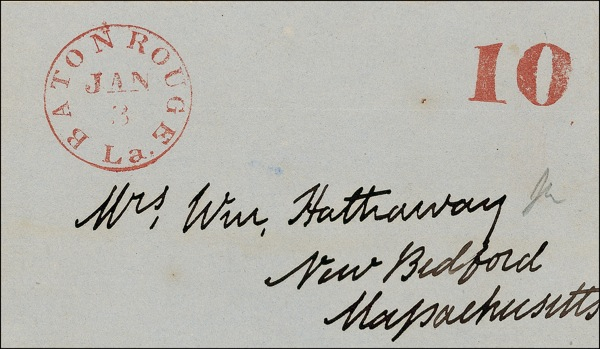 BATON ROUGE La.
JAN
3
10
Mrs, Wm, Hathaway Jr
New Bedford
Massachusetts